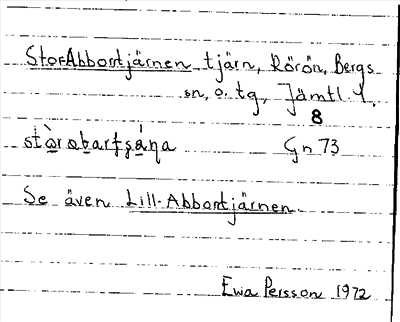 Stor-Abborrtjärnen tjärn, Rörön, Bergs
sn, o. tg., Jämtl. l.
8
stòrabartȿáṇa Gn 73
Se även Lill-Abborrtjärnen.
Ewa Persson 1972